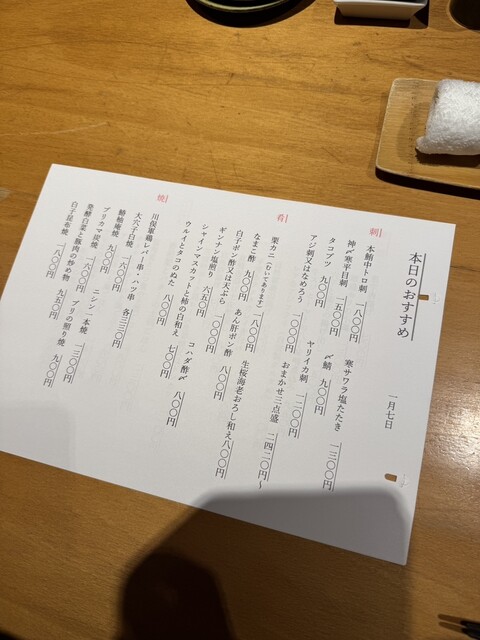 本日のおすすめ
一月七日
刺
本鮪中トロ刺 一八〇〇円
寒サワラ塩たたき 一三〇〇円
神〆寒平目刺 一五〇〇円
〆鯖 九〇〇円
タコブツ 九〇〇円
ヤリイカ刺 一二〇〇円
アジ刺又はなめろう 一〇〇〇円
おまかせ三点盛 二四二〇円〜
肴
栗カニ(むいてあります) 一八〇〇円
生桜海老おろし和え 八〇〇円
なまこ酢 九〇〇円
あん肝ポン酢 八〇〇円
白子ポン酢又は天ぷら 一〇〇〇円
ギンナン塩煎り 六五〇円
コハダ酢〆 八〇〇円
シャインマスカットと柿の白和え 七〇〇円
ウルイとタコのぬた 八〇〇円
焼
川俣軍鶏レバー串・ハツ串 各三三〇円
大穴子白焼 一六〇〇円
鰆柚庵焼 九〇〇円
ニシン一本焼 一三〇〇円
ブリカマ炭焼 一六〇〇円
ブリの煎り焼 九〇〇円
発酵白菜と豚肉の炒め物 九五〇円
白子昆布焼 一八〇〇円